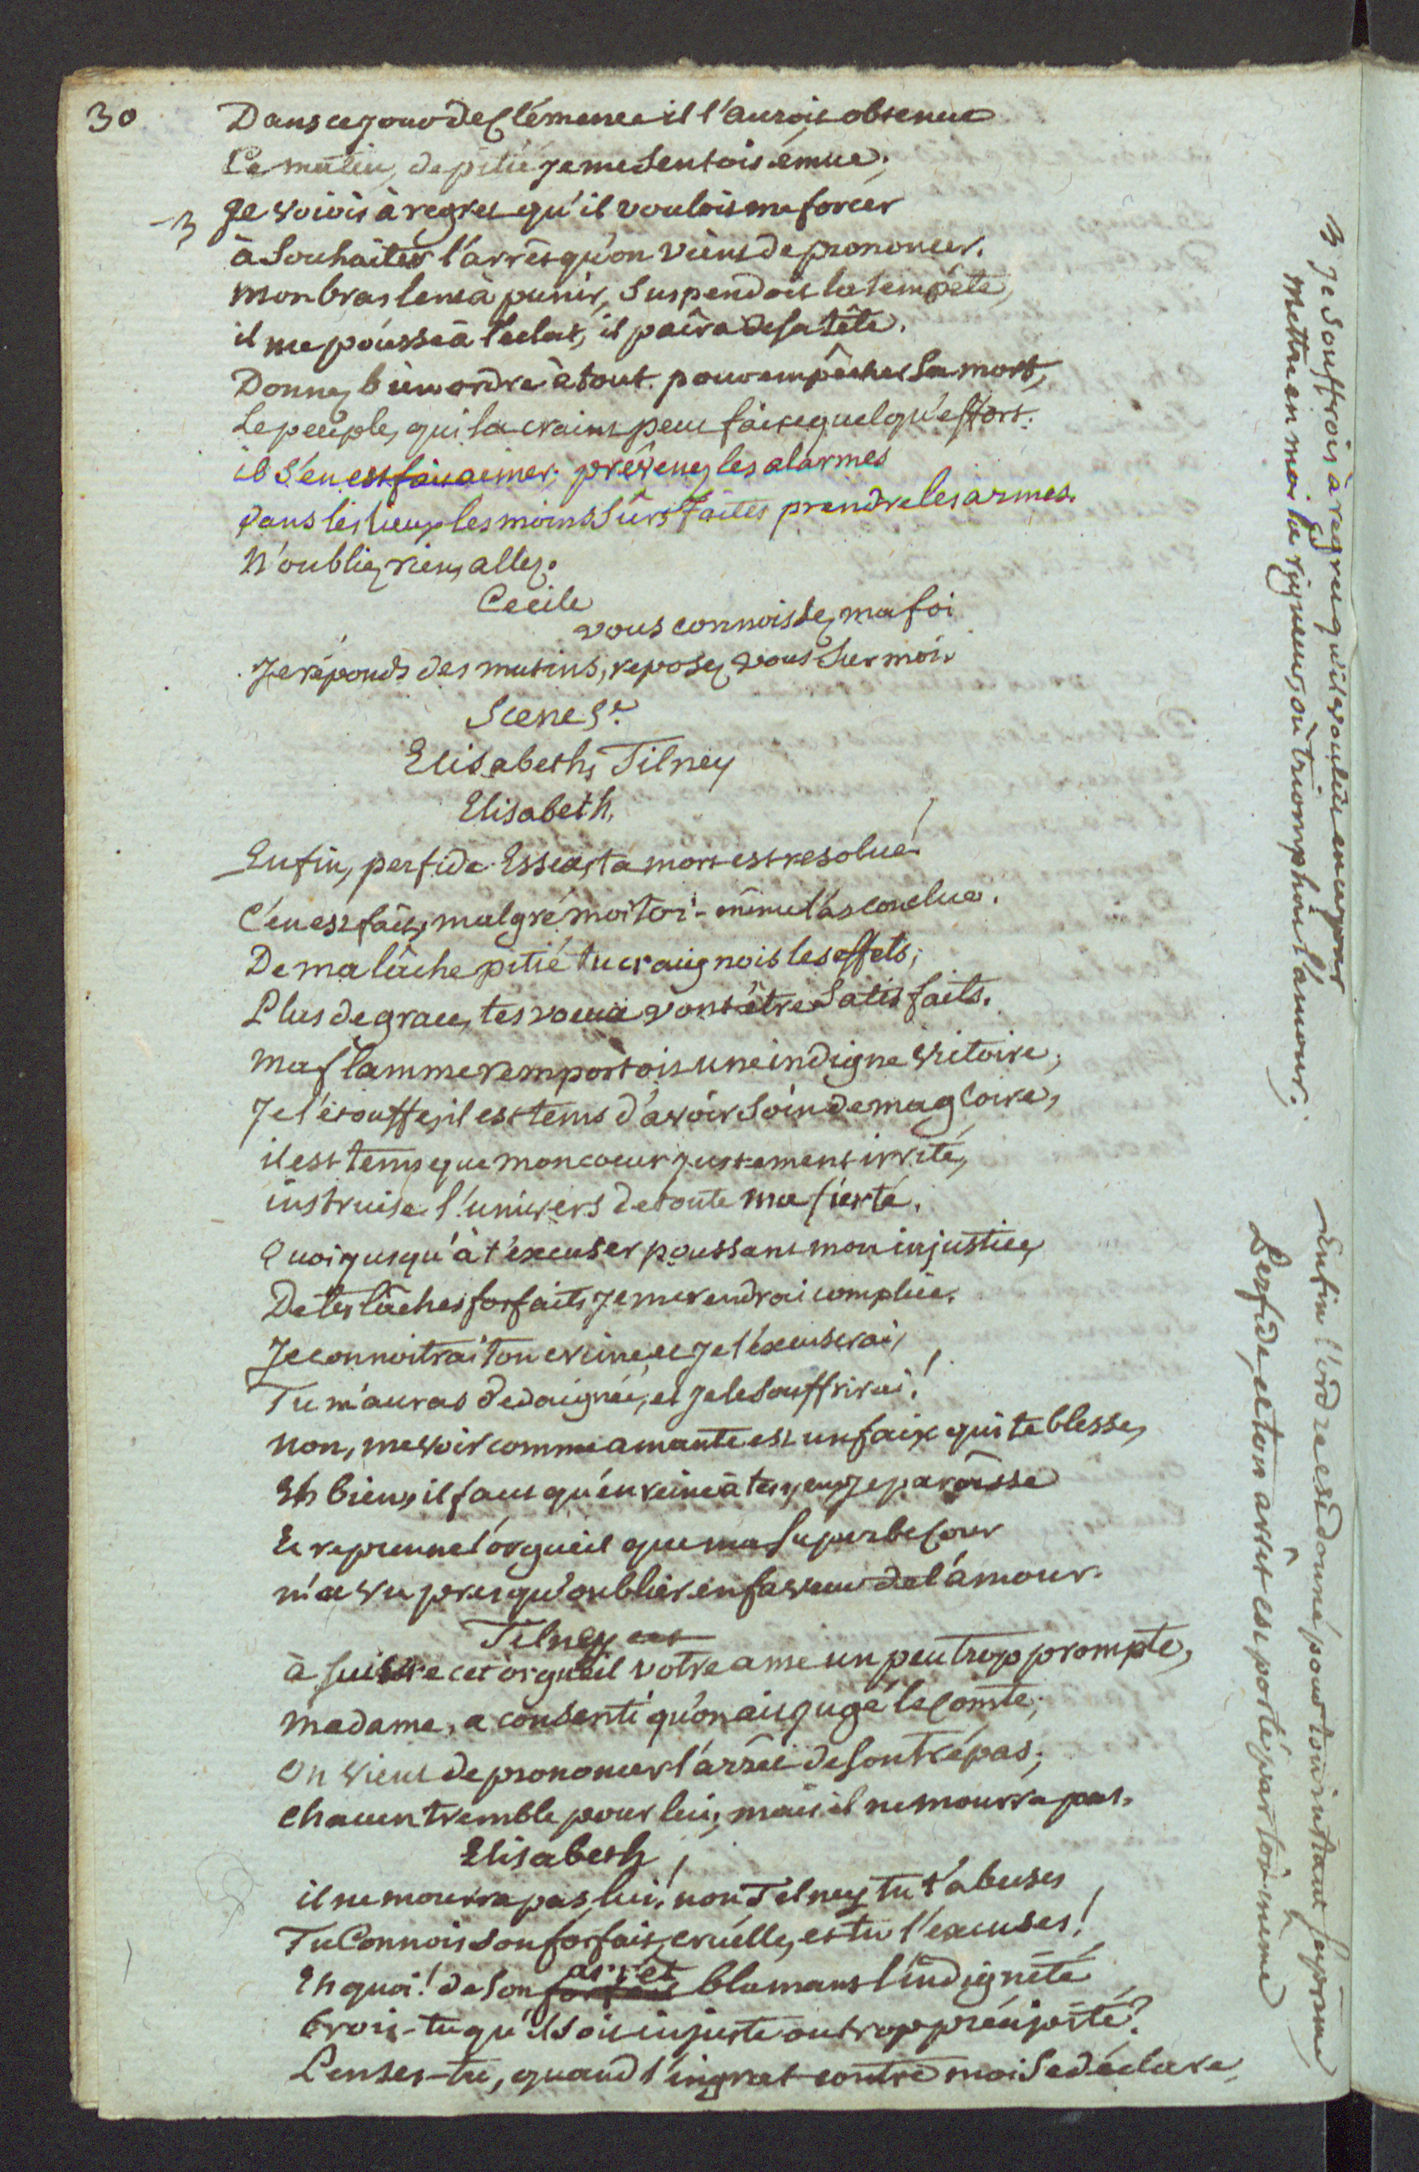 30
Dans ce jour de Clémence il l'auroit obtenue
Ce matin, de pitié je me sentois émue,
Je voiois à regret qu'il vouloit me forcer
à souhaiter l'arrêt qu'on vient de prononcer.
mon bras lent à punir, suspendoit la tempête,
il me pousse à l'eclat, il païra de sa tête.
Donnez bien ordre à tout. pour empêcher sa mort,
Le peuple, qui la craint peut faire quelqu'effort.
il s'en est fait aimer; prévenez les alarmes
dans les lieux les moins sûrs faites prendre les armes.
N'oubliez rien, allez.
Cecile
vous connoissez ma foi
Je réponds des mutins, reposez vous sur moi.
Scene 5e.
Elisabeth, Tilney
Elisabeth.
Enfin, perfide Essex, ta mort est resolue!
C'en est fait, malgré moi toi-même l'as conclue.
De ma lâche pitié tu craignois les effets,
Plus de grace, tes voeux vont être satisfaits.
Ma flamme remportoit une indigne victoire,
Je l'étouffe, il est tems d'avoir soin de ma gloire,
il est tems que mon coeur justement irrité,
instruise l'univers de toute ma fierté.
Quoi jusqu'à t'excuser poussant mon injustice,
De tes lâches forfaits je me rendrai complice.
Je connoitrai ton crime et je t'excuserai,
Tu m'auras dedaignée, et je le souffrirai!
non, me voir comme amante est un faix qui te blesse,
Eh bien, il faut qu'en reine à tes yeux je paroisse
Et reprenne l'orgueil que ma superbe cour
m'a vu presqu'oublier en faveur de l'amour.
Tilney
à suivre cet orgueil votre ame un peu trop prompte,
madame, a consenti qu'on ait jugé le Comte;
On vient de prononcer l'arrêt de son trépas;
chacun tremble pour lui, mais il ne mourra pas.
Elisabeth
il ne mourra pas, lui! non Tilney tu t'abuses
Tu Connois son forfait, cruelle, et tu l'excuses!
Eh quoi! de son arrêt blamant l'indignité
Crois-tu qu'il soit injuste ou trop précipité?
Penses-tu, quand l'ingrat contre moi se déclare,
3 Je souffrois à regret qu'il voulut en ce jour
Mettre en moi la rigueur, où triomphoit l'amour;
Enfin l'ordre est donné pour toi
Perfide, et ton arrêt est porté par toi-même